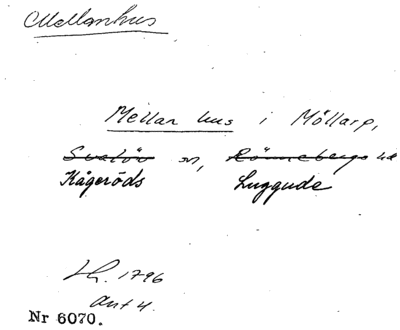 Mellanhus
Mellan hus i Möllarp,
Svalöv sn, Rönnebergs hd
Kågeröds Luggude
Lh. 1796
Ant 4.
Nr 6070.